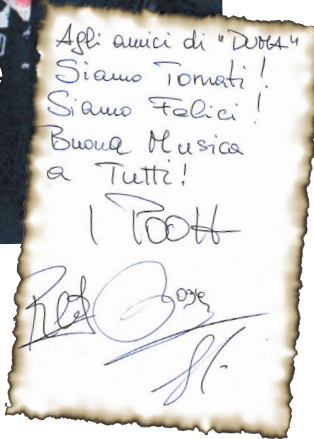 Agli amici di "DUMA"
Siamo Tornati!
Siamo Felici!
Buona Musica
a Tutti!
I POOH
Red